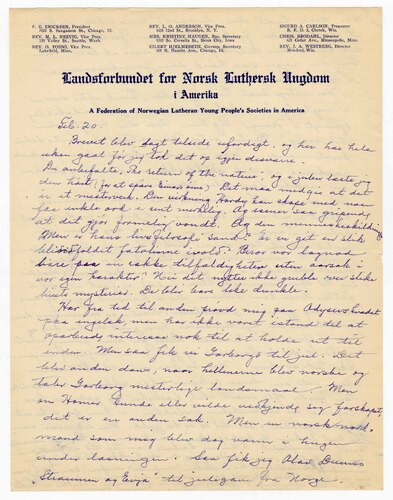 P. E. ERICKSEN, President
REV. M. L. NESVIG, Vice Pres.
REV. O. FOSSO, Vice Pres.
REV. L. O. ANDERSON, Vice Pres.
MRS. KRISTINE HAUGEN, Rec. Secretary
EILERT HJELMSETH, Corresp. Secretary
SIGURD A. CARLSON, Treasurer
CHRIS. BRODAHL, Director
REV. J. A. WESTBERG, Director
Landsforbundet for Norsk Luthersk Ungdom
i Amerika
A Federation of Norwegian Lutheran Young People's Societies in America
Feb. 20.
Brevet blev lagt tilside uferdigt, og her har hele
uken gaat før jeg tok det op igjen desværre.
De anbefalte, The return of the native, og i julen læste jeg
den høit (for at spare Einar sine) Det maa medgis at det
er it mesterverk. Den virkning Hardy kan skape med nogen
faa enkle ord er sent merkelig. Og scener saa gripende
at det gjør formelig vondt. Og den menneskeskildring
Men er hans livsfilosofi sand? Er vi git en slik
fatalisme ivold? Beror vor lagnad
bare paa en rekke tilfældigheter uten aarsak i
vor egen karakter? Nei det nytter ikke gruble over slike
livets mysterier. De blir bare like dunkle.
Har fra tid til anden prøvd mig paa Odyseus kvadet
paa engelsk, men har ikke voret istand til at
oparbeide interesse nok til at holde ut til
enden. Men saa fik vi Garborgs til jul. Det
blev anden dans, naar hellenerne blev norske og
taler Garborg mesterlige landsmaal. Men
om Homer kunde eller vilde vedkjende sig farskapet,
det er en anden sak. Men en norsk nord-
mand som mig blev dog varm i hugen
under læsningen. Saa fik jeg Olav Duuns
"Straumen og Evja" til julegave fra Norge.